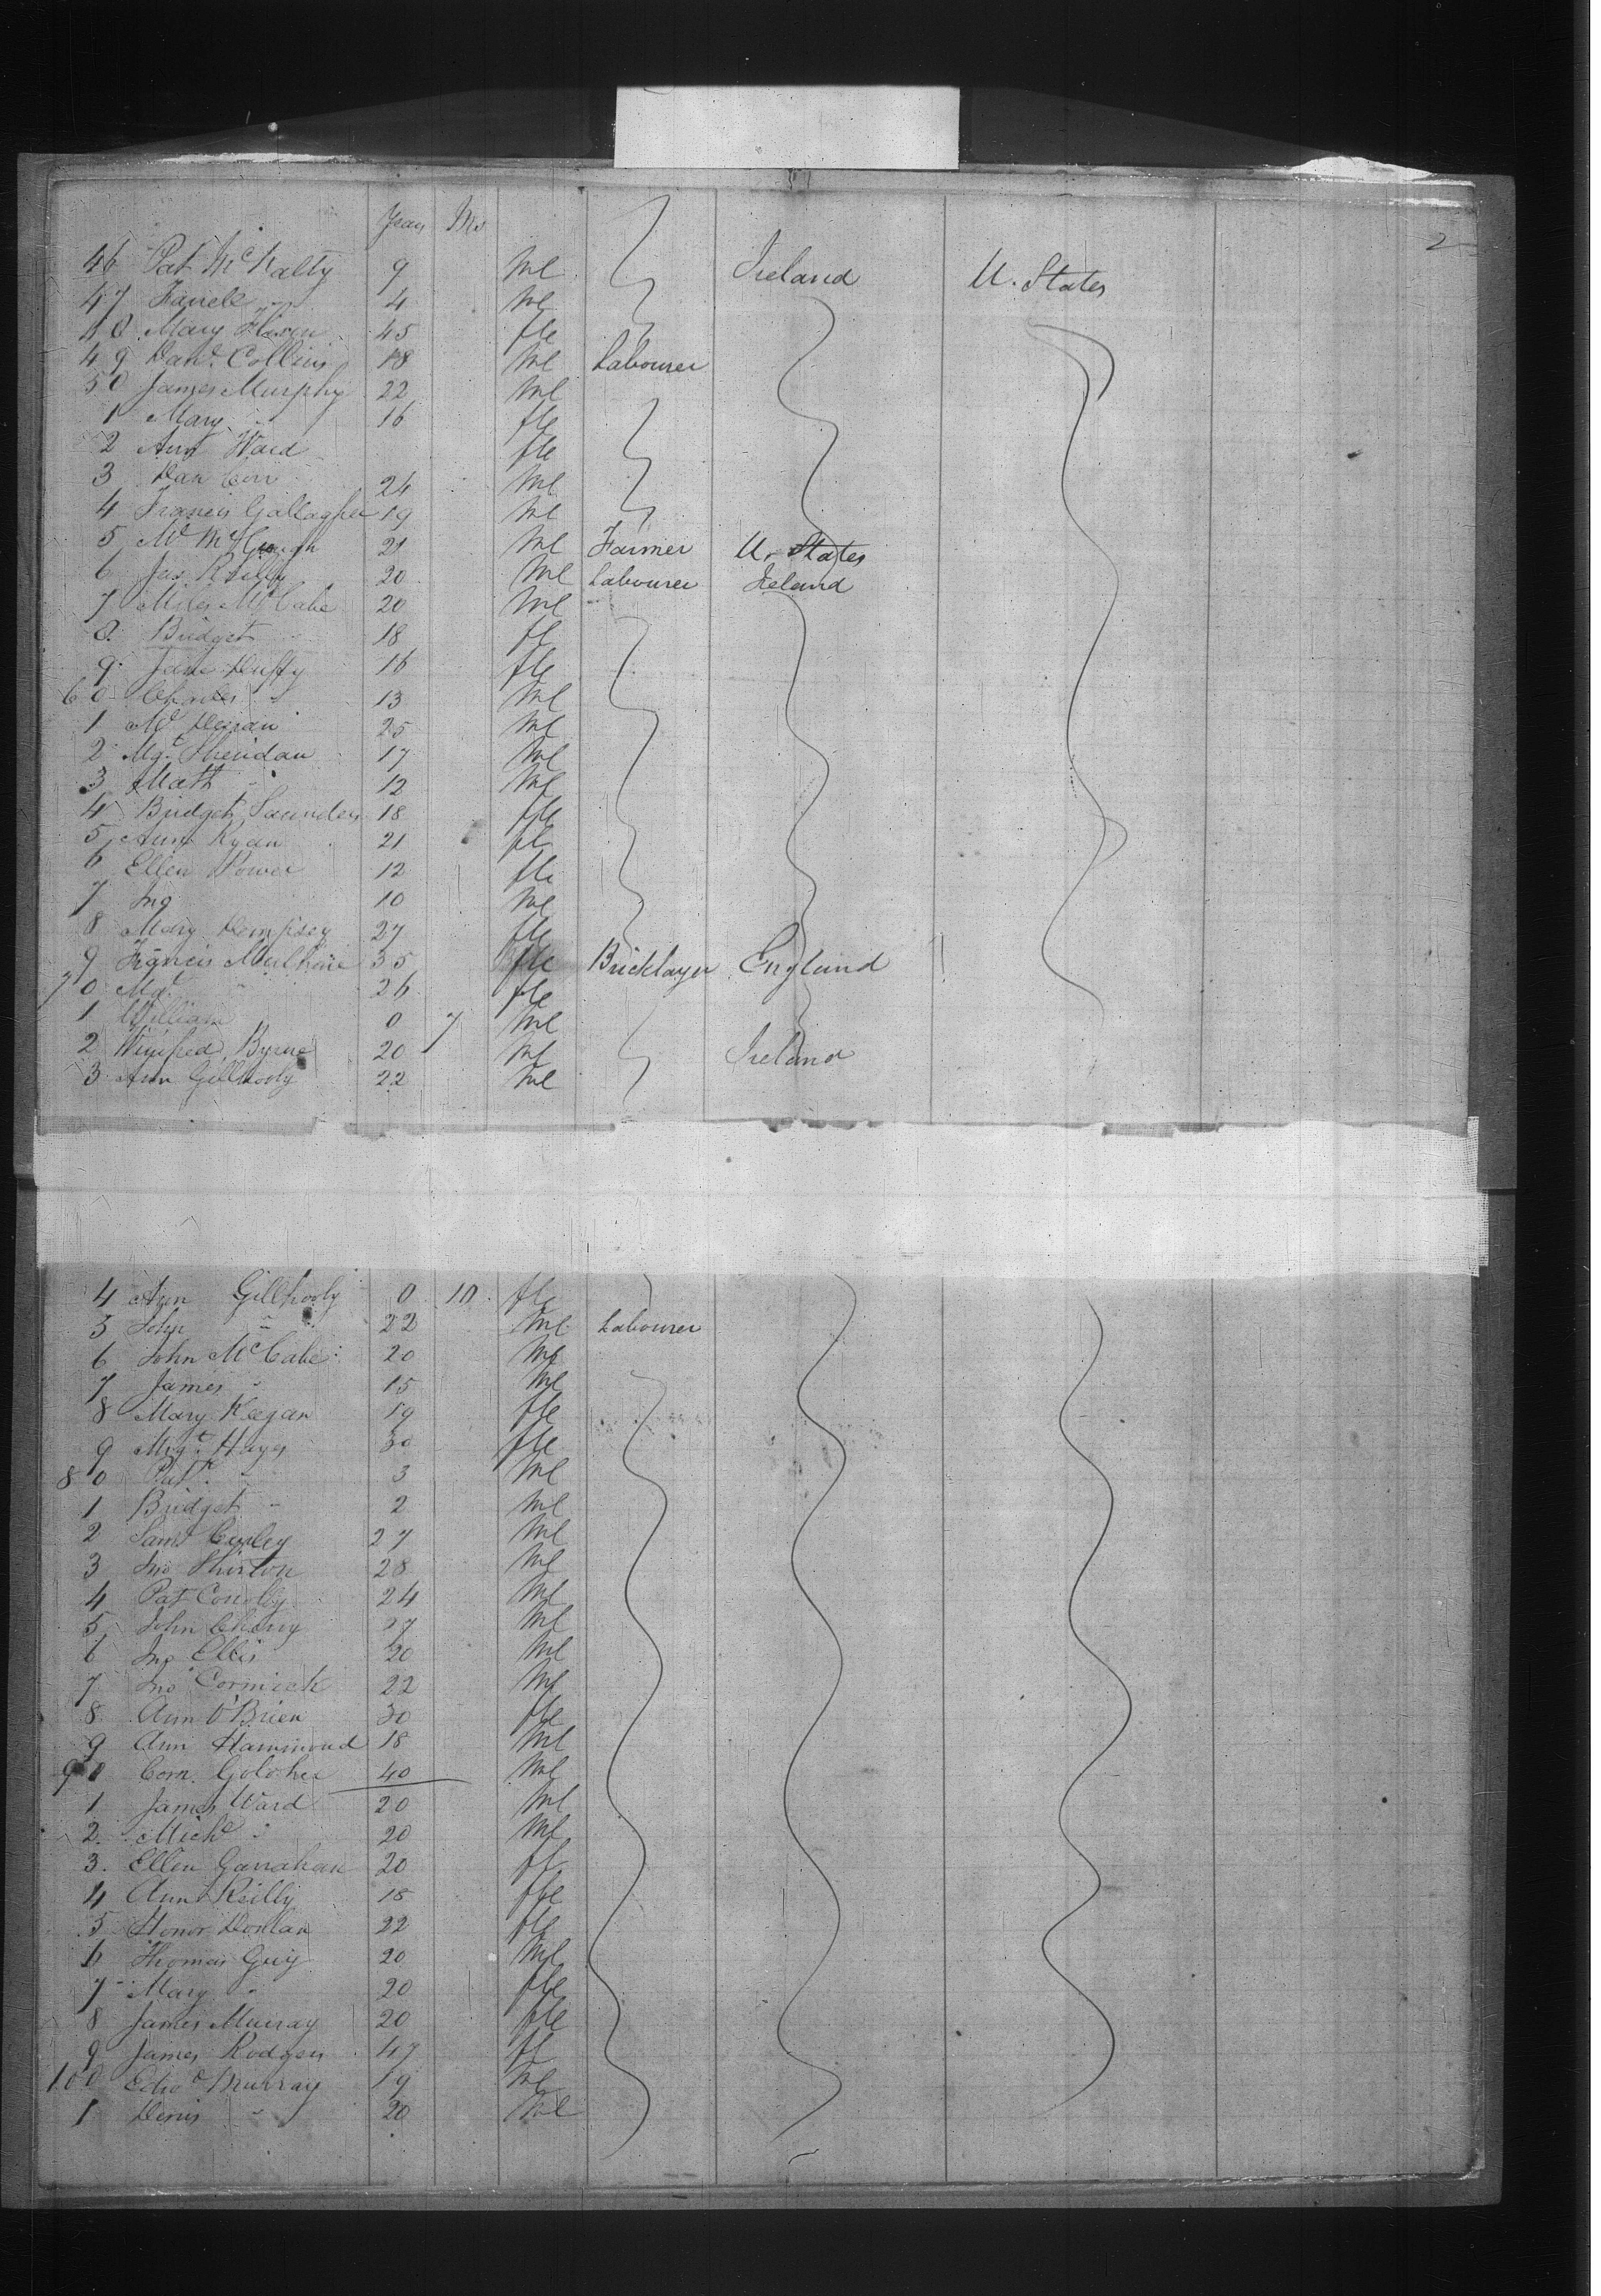 2
Years Ms
46 Pat McNalty 9 Ml Ireland U. States
47 4 Ml
48 Mary 45 fle
49 Danl. Collins 18 Ml Labourer
50 James Murphy 22 Ml
1 Mary " 16 fle
2 Ann Ward fle
3 Dan Corr 24 Ml
4 Francis Gallagher 19 Ml
5 21 Ml Farmer U. States
6 Jas Reilly 20 Ml Labourer Ireland
7 Miles McCabe 20 Ml
8 Bridget " 18 fl
9 Jane Duffy 16 fle
60 Charles " 13 Ml
1 25 Ml
2 Mgt. Sheridan 17 Ml
3 Math " 12 Ml
4 Bridget Saunders 18 fle
5 Ann Ryan 21 fle
6 Ellen Power 12 fle
7 Jno 10 Ml
8 Mary Dempsey 27 fle
9 Francis 35 fle Bricklayer England
70 Mgt " 26 fle
1 William 0 7 Ml
2 Winifred Byrne 20 Ml Ireland
3 Ann Gillhooly 22 Ml
4 Ann Gillhooly 0 10 fle
5 John " 22 Ml Labourer
6 John McCabe 20 Ml
7 James " 15 Ml
8 Mary Keegan 19 fle
9 Mrgt. Hayes 30 fle
80 Patk. " 3 Ml
1 Bridget " 2 Ml
2 Saml 27 Ml
3 Jno 28 Ml
4 Pat Conolly 24 Ml
5 John 27 Ml
6 Jno Ellis 20 Ml
7 Jno Cormick 22 Ml
8 Ann O'Brien 30 fle
9 Ann Hammond 18 Ml
90 Corn. 40 Ml
1 James Ward 20 Ml
2 Michl " 20 Ml
3 Ellen 20 fle
4 Ann Reilly 18 fle
5 Honor Donlan 22 fle
6 Thomas 20 Ml
7 Mary " 20 fle
8 James Murray 20 fle
9 James Rodgers 47 fl
100 Edwd Murray 19 Ml
1 Denis " 20 Ml